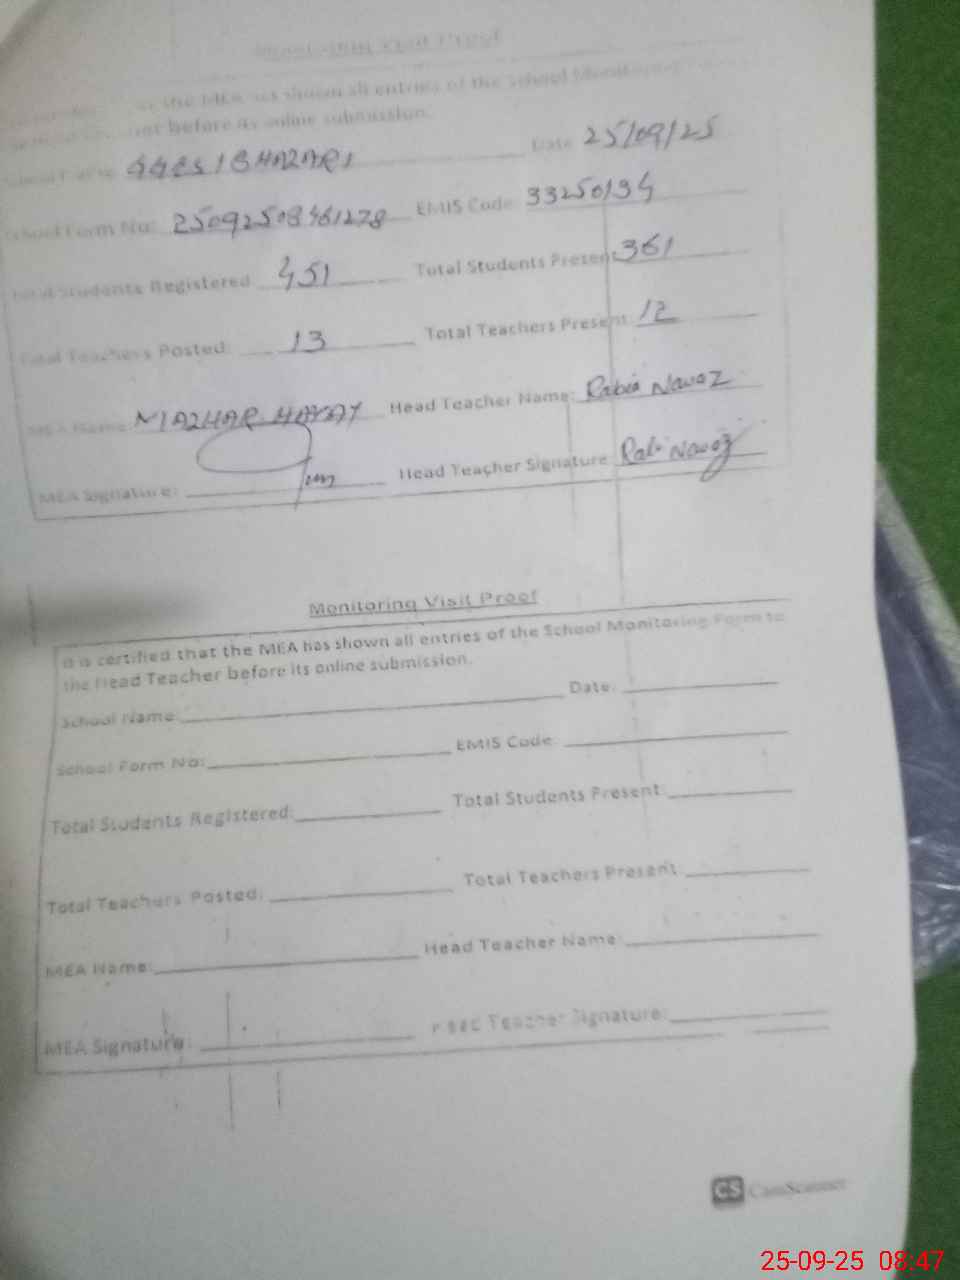 Monitoring Visit Proof
the MEA has shown all entries of the School Monitoring
before its online submission.
Date 25/09/25
School Form No: 25092508461278 EMIS Code 33250134
Total Students Registered 451 Total Students Present 361
Total Teachers Posted: 13 Total Teachers Present 12
MEA Name: MAZHAR HAYAT Head Teacher Name: Rabia Nawaz
MEA Signature: Head Teacher Signature Rabi Nawaz
Monitoring Visit Proof
It is certified that the MEA has shown all entries of the School Monitoring Form to
the Head Teacher before its online submission.
School Name Date:
School Form No: EMIS Code
Total Students Registered: Total Students Present
Total Teachers Posted: Total Teachers Present
MEA Name: Head Teacher Name:
MEA Signature: Teacher Signature:
CS CamScanner
25-09-25 08:47